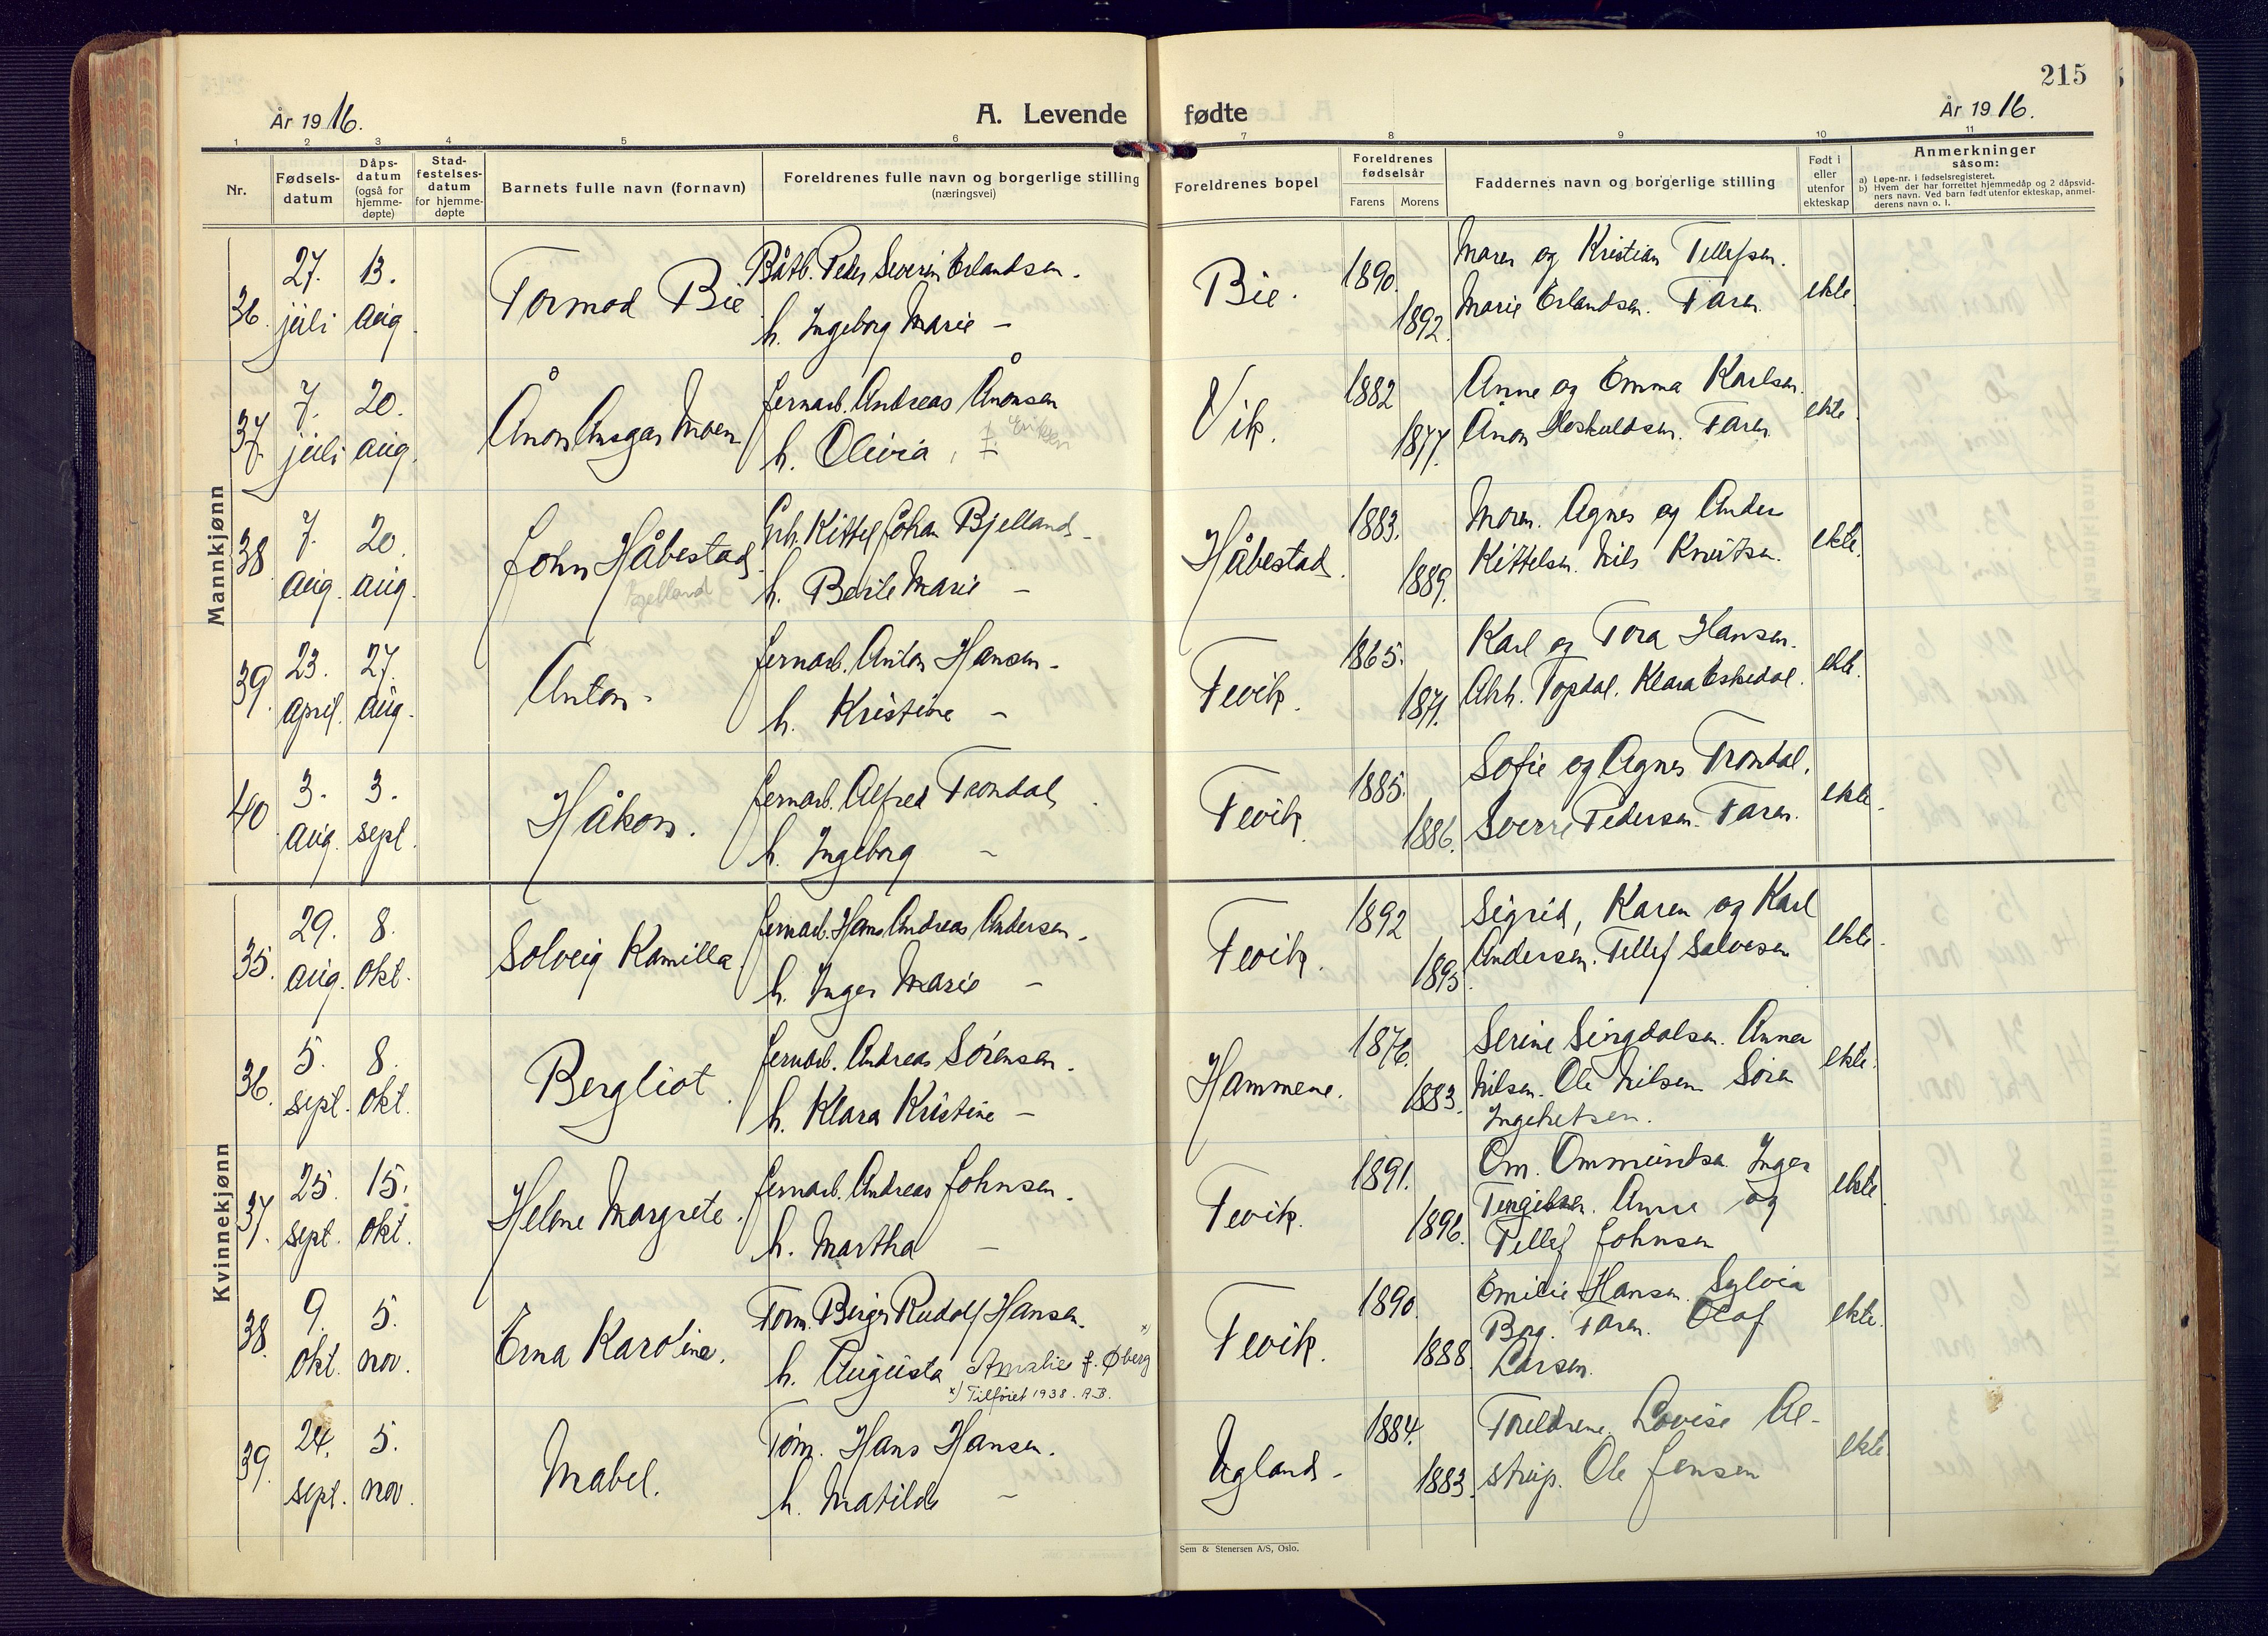 215
År 1916.
A. Levende fødte
År 1916.
1 2 3 4 5 6 7 8 9 10 11
Nr.
Fødsels-
datum
Dåps-
datum
(også for
hjemme-
døpte)
Stad-
festelses-
datum
for hjemme-
døpte
Barnets fulle navn (fornavn)
Foreldrenes fulle navn og borgerlige stilling
(næringsvei)
Foreldrenes bopel
Foreldrenes
fødselsår
Farens Morens
Faddernes navn og borgerlige stilling
Født i
eller
utenfor
ekteskap
Anmerkninger
såsom:
a) Løpe-nr. i fødselsregisteret.
b) Hvem der har forrettet hjemmedåp og 2 dåpsvid-
ners navn. Ved barn født utenfor ekteskap, anmel-
derens navn o. l.
Mannkjønn
36. 27. juli 13. aug. Tormod Bie Båtb. Peder Severin Erlandsen.
h. Ingeborg Marie –
Bie. 1890. 1892. Maren og Kristian Tellefsen.
Marie Erlandsen. Faren. ekte.
37. 7. juli 20. aug. Ånon Ansgar Moen Jernarb. Andreas Ånonsen
h. Olivia, f.
Vik. 1882 1877. Anne og Emma Karlsen.
Ånon Hoskuldsen. Faren. ekte.
38. 7. aug. 20. aug. John Håbestad.
Bjelland
Grb. Kittel Johan Bjelland –
h. Berte Marie –
Håbestad. 1883. 1889. Moren. Agnes og Ander
Kittelsen. Nils Knutsen. ekte.
39. 23. april. 27. aug. Anton. Jernarb. Anton Hansen –
h. Kristine –
Fevik. 1865. 1871. Karl og Tora Hansen.
Topdal. Klara Eskedal. ekte.
40. 3. aug. 3. sept. Håkon. Jernarb. Alfred Trondal.
h. Ingeborg –
Fevik. 1885. 1886. Sofie og Agnes Trondal.
Sverre Pedersen. Faren. ekte.
Kvinnekjønn
35. 29. aug. 8. okt. Solveig Kamilla. Jernarb. Hans Andreas Andersen.
h. Inger Marie –
Fevik. 1892 1895. Sigrid, Karen og Karl
Andersen. Tellef Salvesen ekte.
36. 5. sept. 8. okt. Bergliot. Jernarb. Andreas Sørensen.
h. Klara Kristine –
Hammene. 1876. 1883. Serine Singdalsen. Anna
Nilsen. Ole Nilsen Søren
Ingebretsen. ekte.
37. 25. sept. 15. okt. Helene Margrete. Jernarb. Andreas Johnsen.
h. Martha –
Fevik. 1891. 1896. Om. Ommundsen. Inger
Terjesen. Anna og
Tellef Johnsen ekte.
38. 9. okt. 5. nov. Erna Karoline. Tøm. Birger Rudolf Hansen.
h. Augusta Amalie f. Øberg x)
x) Tilføiet 1938. A.B.
Fevik. 1890. 1888. Emilie Hansen. Sylvia
Berg. Faren. Olaf
Larsen. ekte.
39. 24. sept. 5. nov. Mabel. Tøm. Hans Hansen.
h. Matilde –
Ugland. 1884. 1883. Foreldrene. Lovise Al-
strup. Ole Jensen ekte.
Sem & Stenersen A/S, Oslo.